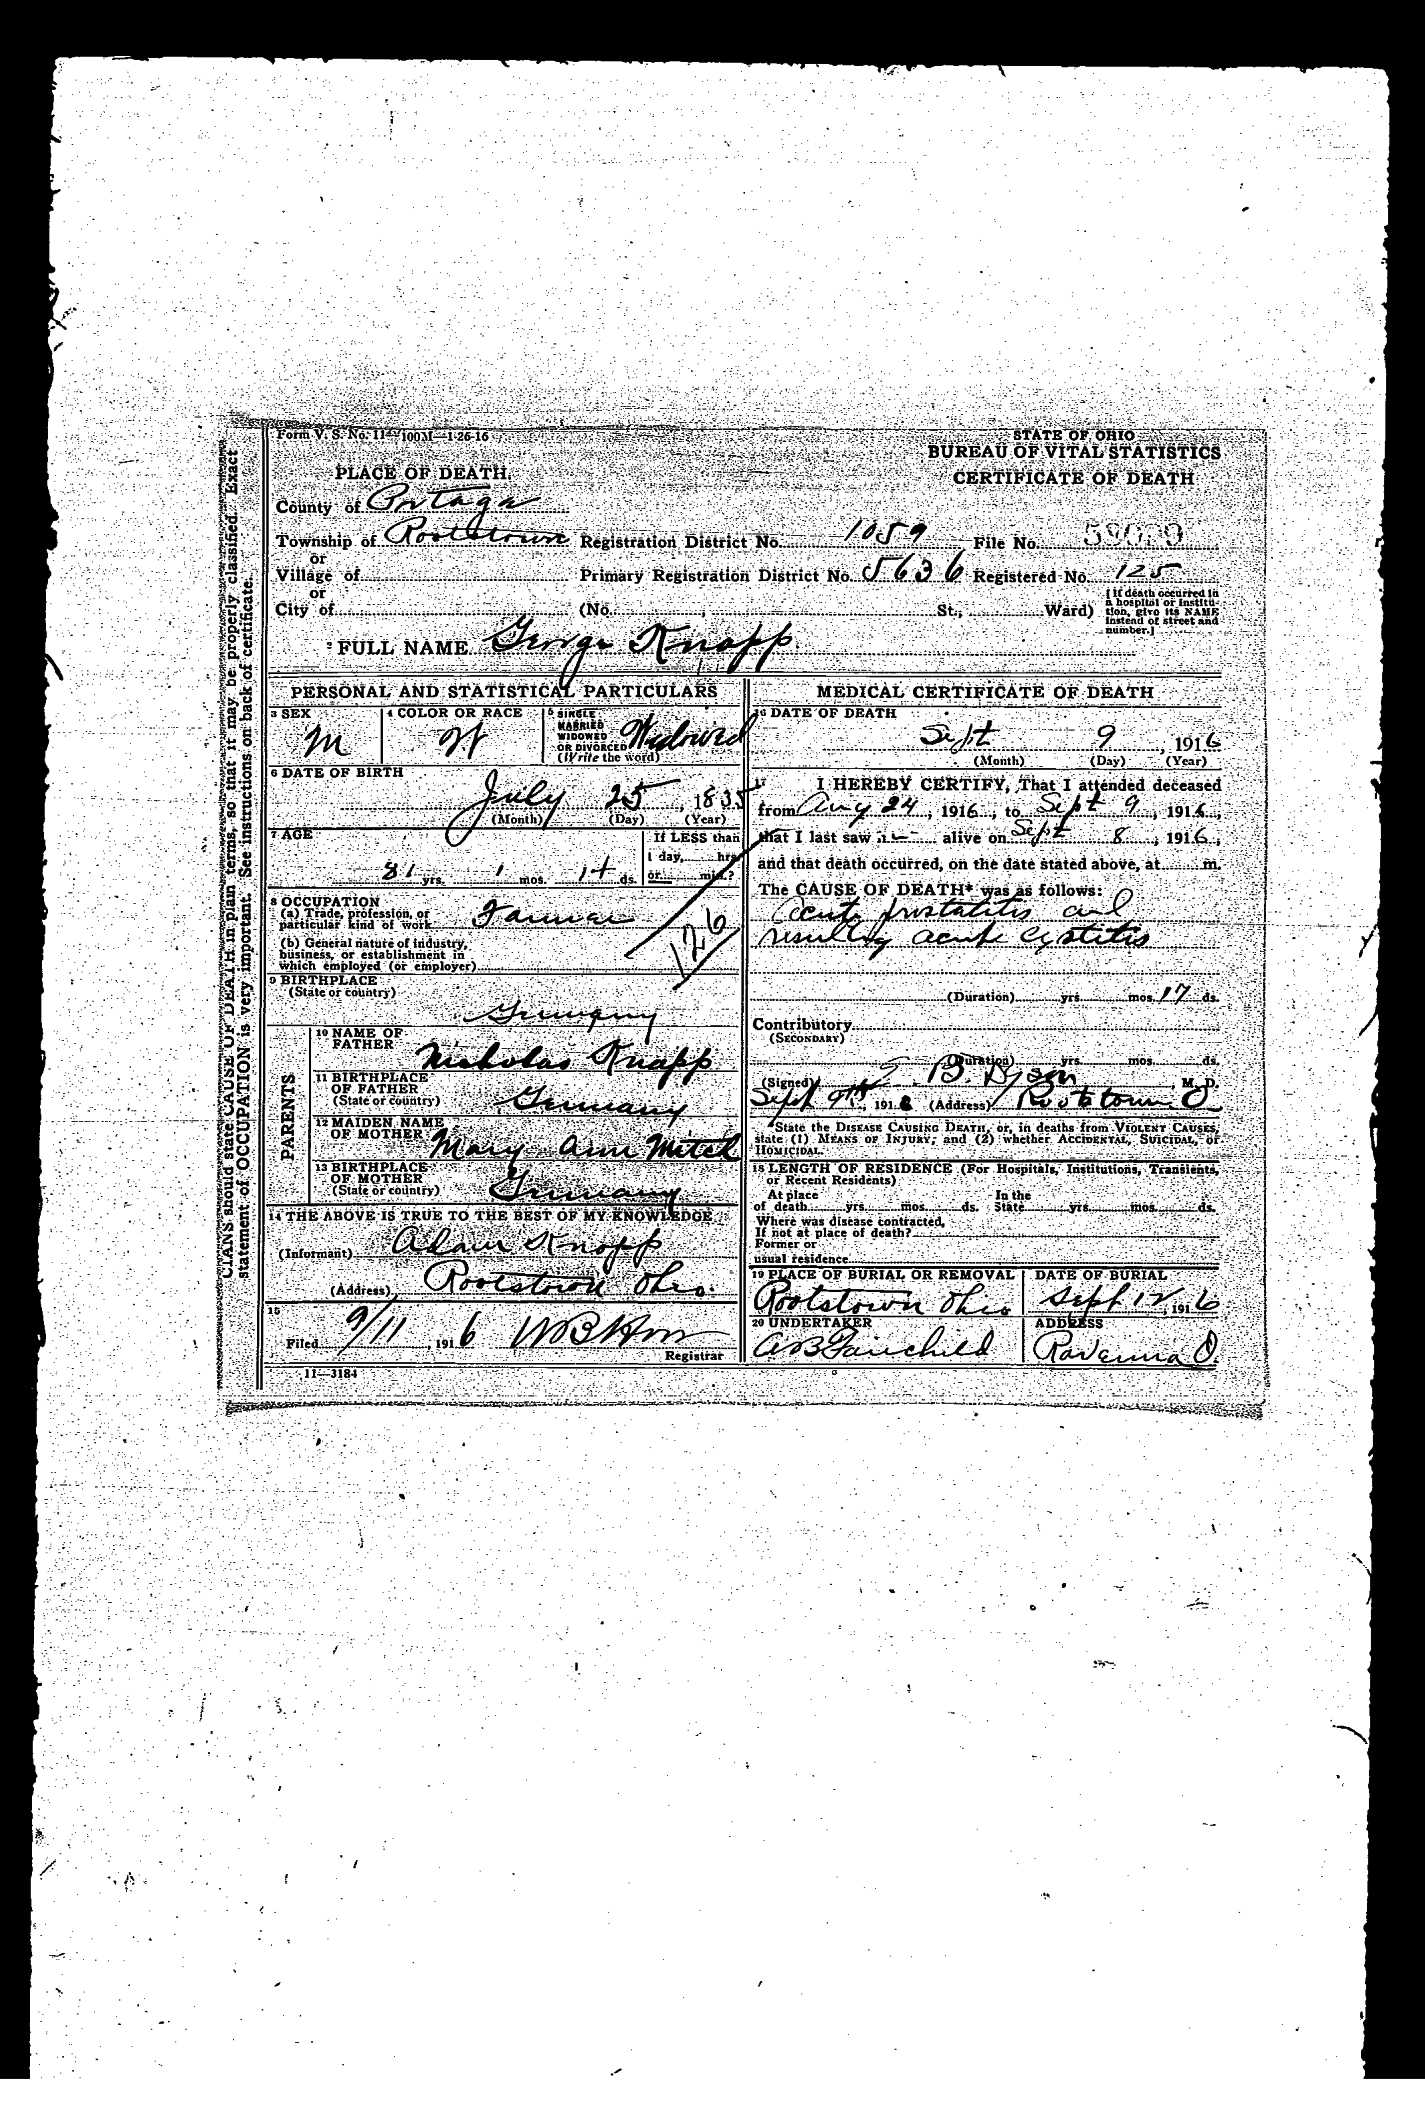 Form V. S. No. 11—100M—1-26-16
STATE OF OHIO
BUREAU OF VITAL STATISTICS
CERTIFICATE OF DEATH
PLACE OF DEATH.
County of Portage
Township of Rootstown Registration District No. 1059 File No.
or
Village of Primary Registration District No. 5636 Registered No. 125
or
City of (No. , St., Ward)
[If death occurred in
a hospital or institu-
tion, give its NAME
instead of street and
number.]
2 FULL NAME George Knapp
PERSONAL AND STATISTICAL PARTICULARS
3 SEX
M
4 COLOR OR RACE
W
5 SINGLE
MARRIED
WIDOWED
OR DIVORCED
(Write the word)
Widowed
6 DATE OF BIRTH
July 25, 1835
(Month) (Day) (Year)
7 AGE
81 yrs. 1 mos. 14 ds.
If LESS than
1 day, hrs.
or min.?
8 OCCUPATION
(a) Trade, profession, or
particular kind of work Farmer
(b) General nature of industry,
business, or establishment in
which employed (or employer)
126
9 BIRTHPLACE
(State or country)
Germany
PARENTS
10 NAME OF
FATHER
Nicholas Knapp
11 BIRTHPLACE
OF FATHER
(State or country)
Germany
12 MAIDEN NAME
OF MOTHER
Mary Ann Metch
13 BIRTHPLACE
OF MOTHER
(State or country)
Germany
14 THE ABOVE IS TRUE TO THE BEST OF MY KNOWLEDGE
(Informant) Adam Knapp
(Address) Rootstown Ohio.
15
Filed 9/11, 1916
Registrar
11—3184
MEDICAL CERTIFICATE OF DEATH
16 DATE OF DEATH
Sept 9, 1916
(Month) (Day) (Year)
17 I HEREBY CERTIFY, That I attended deceased
from Aug 24, 1916, to Sept 9, 1916,
that I last saw alive on Sept 8, 1916,
and that death occurred, on the date stated above, at m.
The CAUSE OF DEATH* was as follows:
Acute prostatitis and
resulting acute cystitis
(Duration) yrs. mos. 17 ds.
Contributory
(SECONDARY)
(Duration) yrs. mos. ds.
(Signed) B. Dyson, M. D.
Sept 9th, 191 (Address) Rootstown O
*State the DISEASE CAUSING DEATH, or, in deaths from VIOLENT CAUSES,
state (1) MEANS OF INJURY; and (2) whether ACCIDENTAL, SUICIDAL, or
HOMICIDAL.
18 LENGTH OF RESIDENCE (For Hospitals, Institutions, Transients,
or Recent Residents)
At place In the
of death yrs. mos. ds. State yrs. mos. ds.
Where was disease contracted,
If not at place of death?
Former or
usual residence
19 PLACE OF BURIAL OR REMOVAL
Rootstown Ohio
DATE OF BURIAL
Sept 12, 1916
20 UNDERTAKER
A B Fairchild
ADDRESS
Ravenna O.
CIANS should state CAUSE OF DEATH in plain terms, so that it may be properly classified. Exact
statement of OCCUPATION is very important. See instructions on back of certificate.